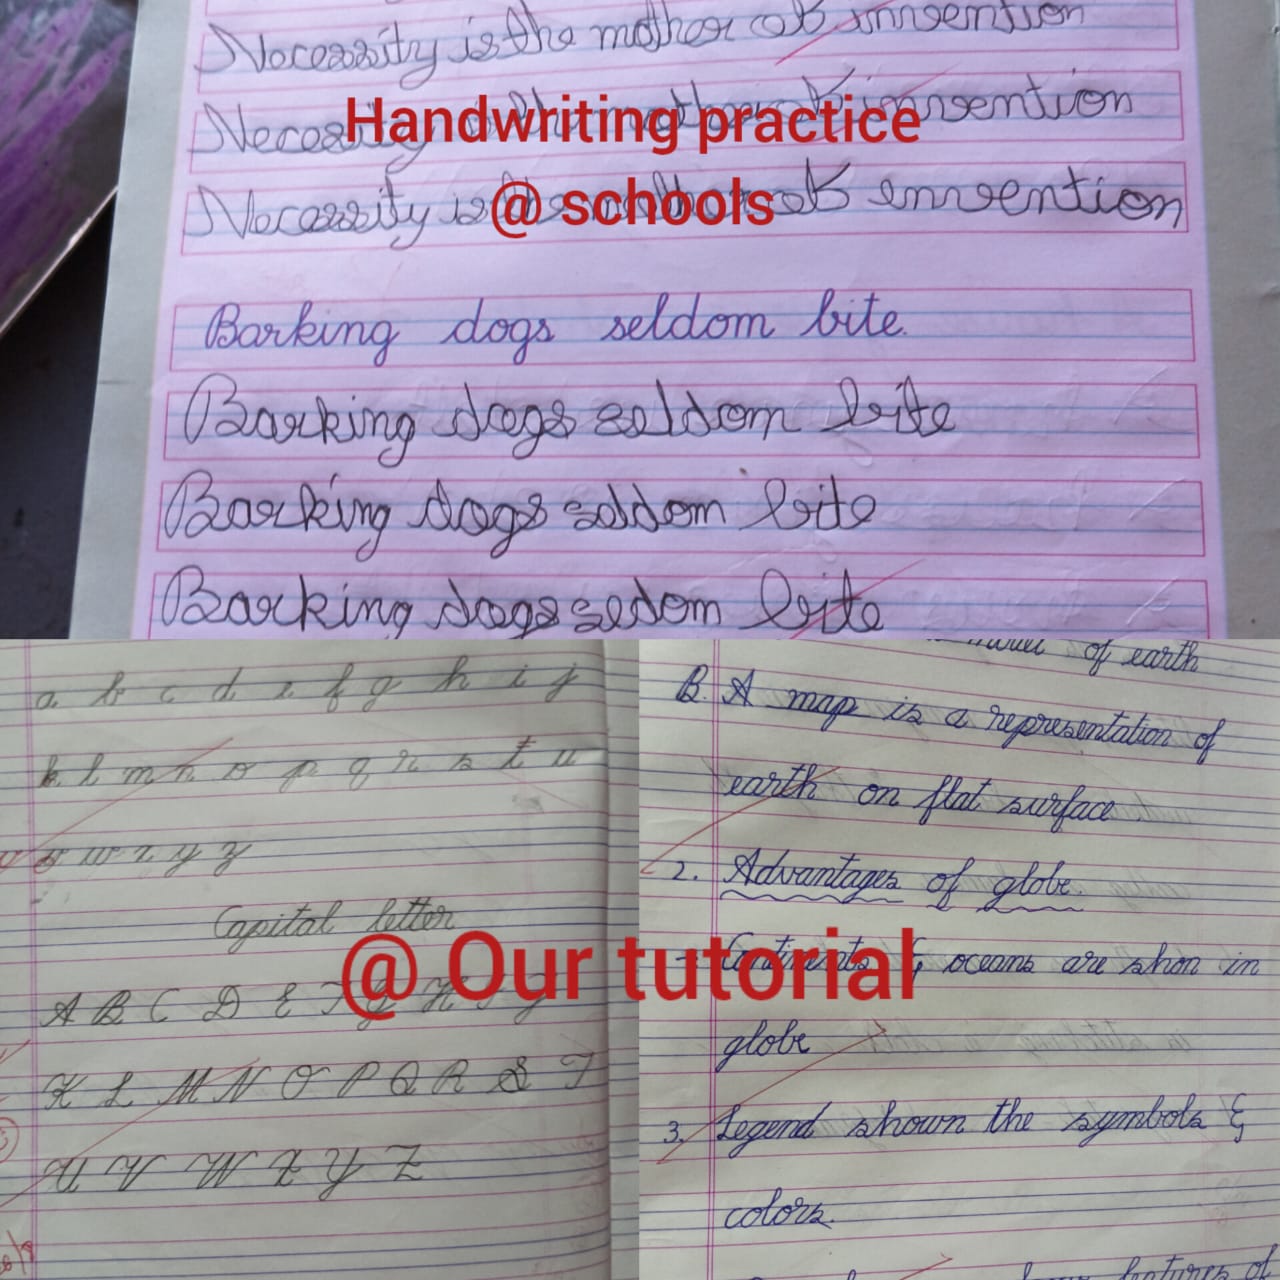 Necessity is the mother of invention
Necessity is the mother of invention
Handwriting practice
Necessity is the mother of invention
@ schools
Barking dogs seldom bite.
Barking dogs seldom bite
Barking dogs seldom bite
Barking dogs sedom bite
a b c d e f g h i j
k l m n o p q r s t u
v w x y z
Capital letter
A B C D E F G H I J
K L M N O P Q R S T
U V W X Y Z
@ Our tutorial
of earth
B. A map is a representation of
earth on flat surface.
2. Advantages of globe.
- Continents & oceans are shon in
globe
3. Legend shown the symbols &
colors.
features of